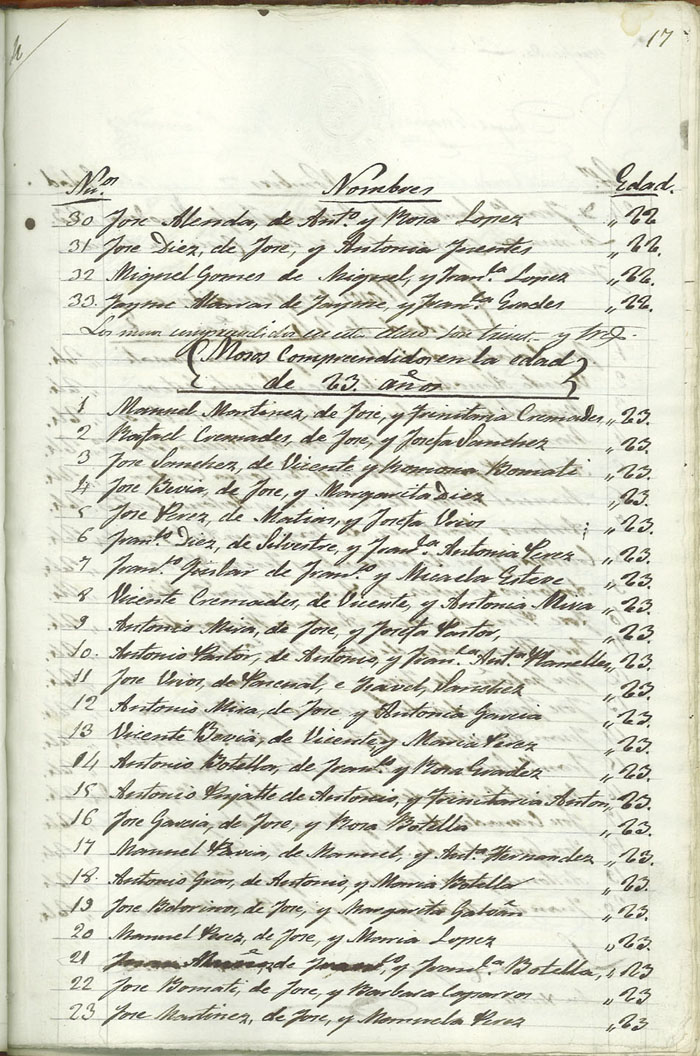 17
Nu.os Nombres Edad.
30 Jose Alenda, de Ant.o y Rosa Lopez „ 22
31 Jose Diez, de Jose, y Antonia Fuentes „ 22.
32 Miguel Gomes de Miguel, y Fran.ca Lopez „ 22.
33. Jayme de Jayme, y Fran.ca „ 22.
Los mosos comprendidos en esta edad son treinta y tres.
(Mosos Comprendidos en la edad
de 23 años)
1 Manuel Martinez, de Jose, y Trinitaria Cremades „ 23.
2 Rafael Cremades, de Jose, y Josefa Sanchez „ 23.
3 Jose Sanchez, de Vicente y Ramona Bomati „ 23.
4 Jose Bevia, de Jose, y Margarita Diez „ 23.
5 Jose Perez, de Matias, y Josefa Urios „ 23.
6 Fran.co Diez, de Silvestre, y Fran.ca Antonia Perez „ 23.
7 Fran.co de Fran.co y Micaela Esteve „ 23.
8 Vicente Cremades, de Vicente, y Antonia Mira „ 23.
9 Antonio Mira, de Jose, y Josefa Pastor, „ 23.
10. Antonio Pastor, de Antonio, y Fran.ca Ant.a Planelles „ 23.
11 Jose Urios, de Pascual, e Isavel, Sanchez „ 23.
12 Antonio Mira, de Jose y Antonia Garcia „ 23.
13 Vicente Bevia, de Vicente, y Maria Perez „ 23.
14 Antonio Botella, de Fran.co y Rosa „ 23.
15 Antonio Pujalte de Antonio, y Trinitaria Anton „ 23.
16 Jose Garcia, de Jose, y Rosa Botella „ 23.
17 Manuel de Manuel, y Ant.a Hernandez „ 23.
18. Antonio Gras, de Antonio, y Maria Botella „ 23.
19 Jose de Jose, y Margarita Galvañ „ 23.
20 Manuel Perez, de Jose, y Maria Lopez „ 23.
21 de y Fran.ca Botella, „ 23
22 Jose Bomati, de Jose, y Barbara Caparros „ 23
23 Jose Martinez, de Jose, y Manuela Perez „ 23